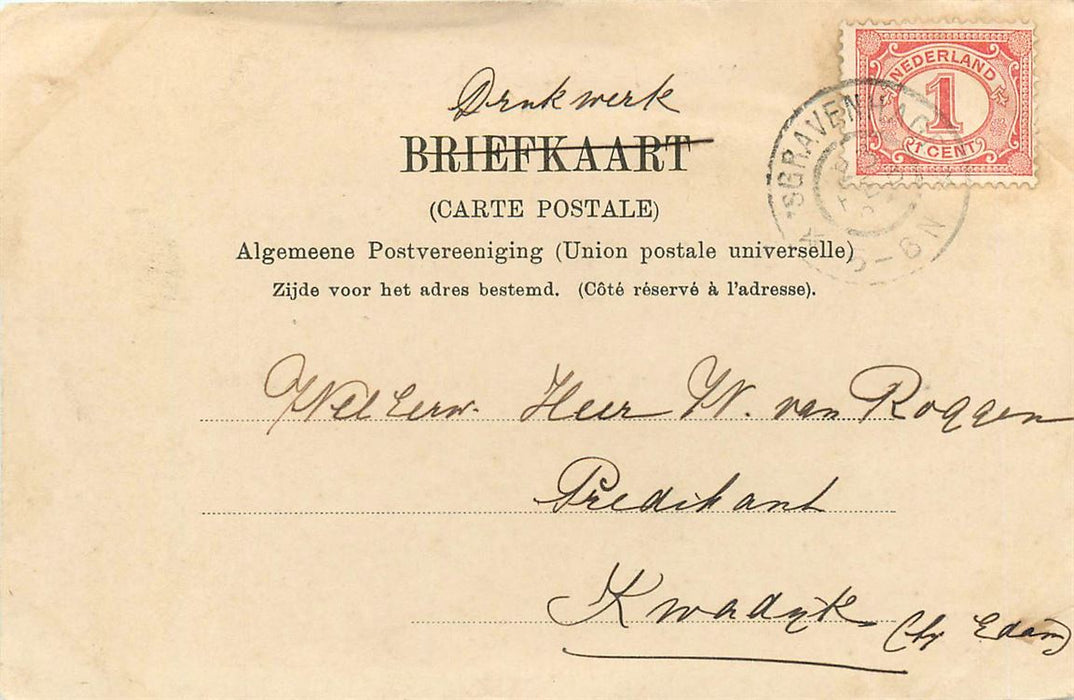 Drukwerk
BRIEFKAART
(CARTE POSTALE)
Algemeene Postvereeniging (Union postale universelle)
Zijde voor het adres bestemd. (Côté réservé à l'adresse).
NEDERLAND
1
1 CENT
'SGRAVENHAGE
5-6N
WelEerw. Heer W. van Roggen
Predikant
Kwadijk (by Edam)